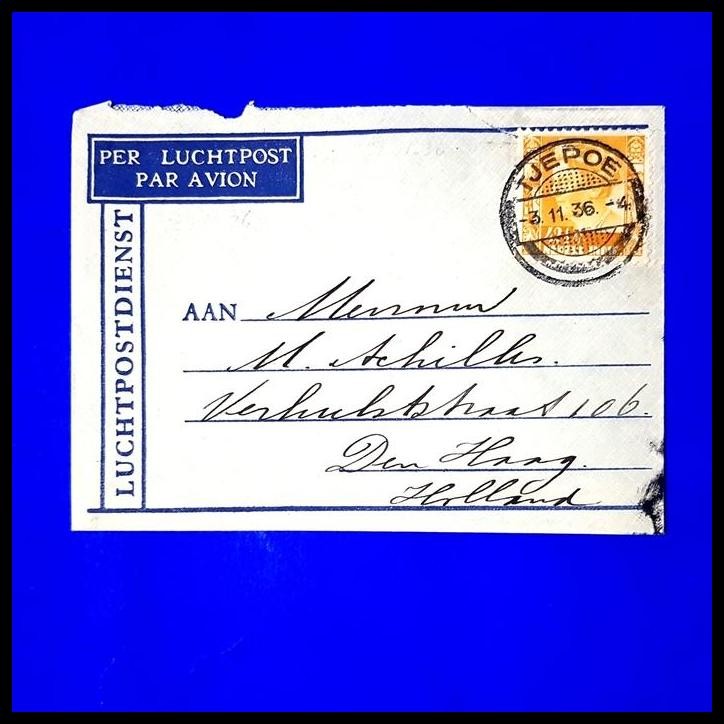 PER LUCHTPOST
PAR AVION
LUCHTPOSTDIENST
TJEPOE
-3.11.36.-4
AAN Mevrouw
M. Achilles.
Verhulststraat 106.
Den Haag.
Holland